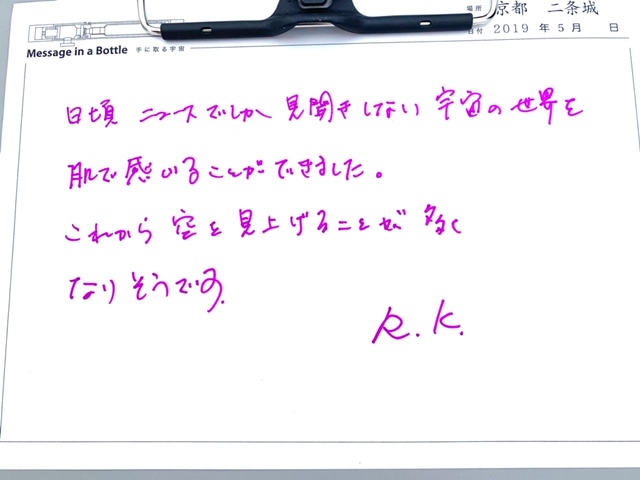 場所 京都 二条城
日付 2019 年 5 月 日
Message in a Bottle 手に取る宇宙
日頃 ニュースでしか 見聞きしない 宇宙の世界を
肌で感いることができました。
これから 空を見上げることが 多く
なりそうです。
R. K.